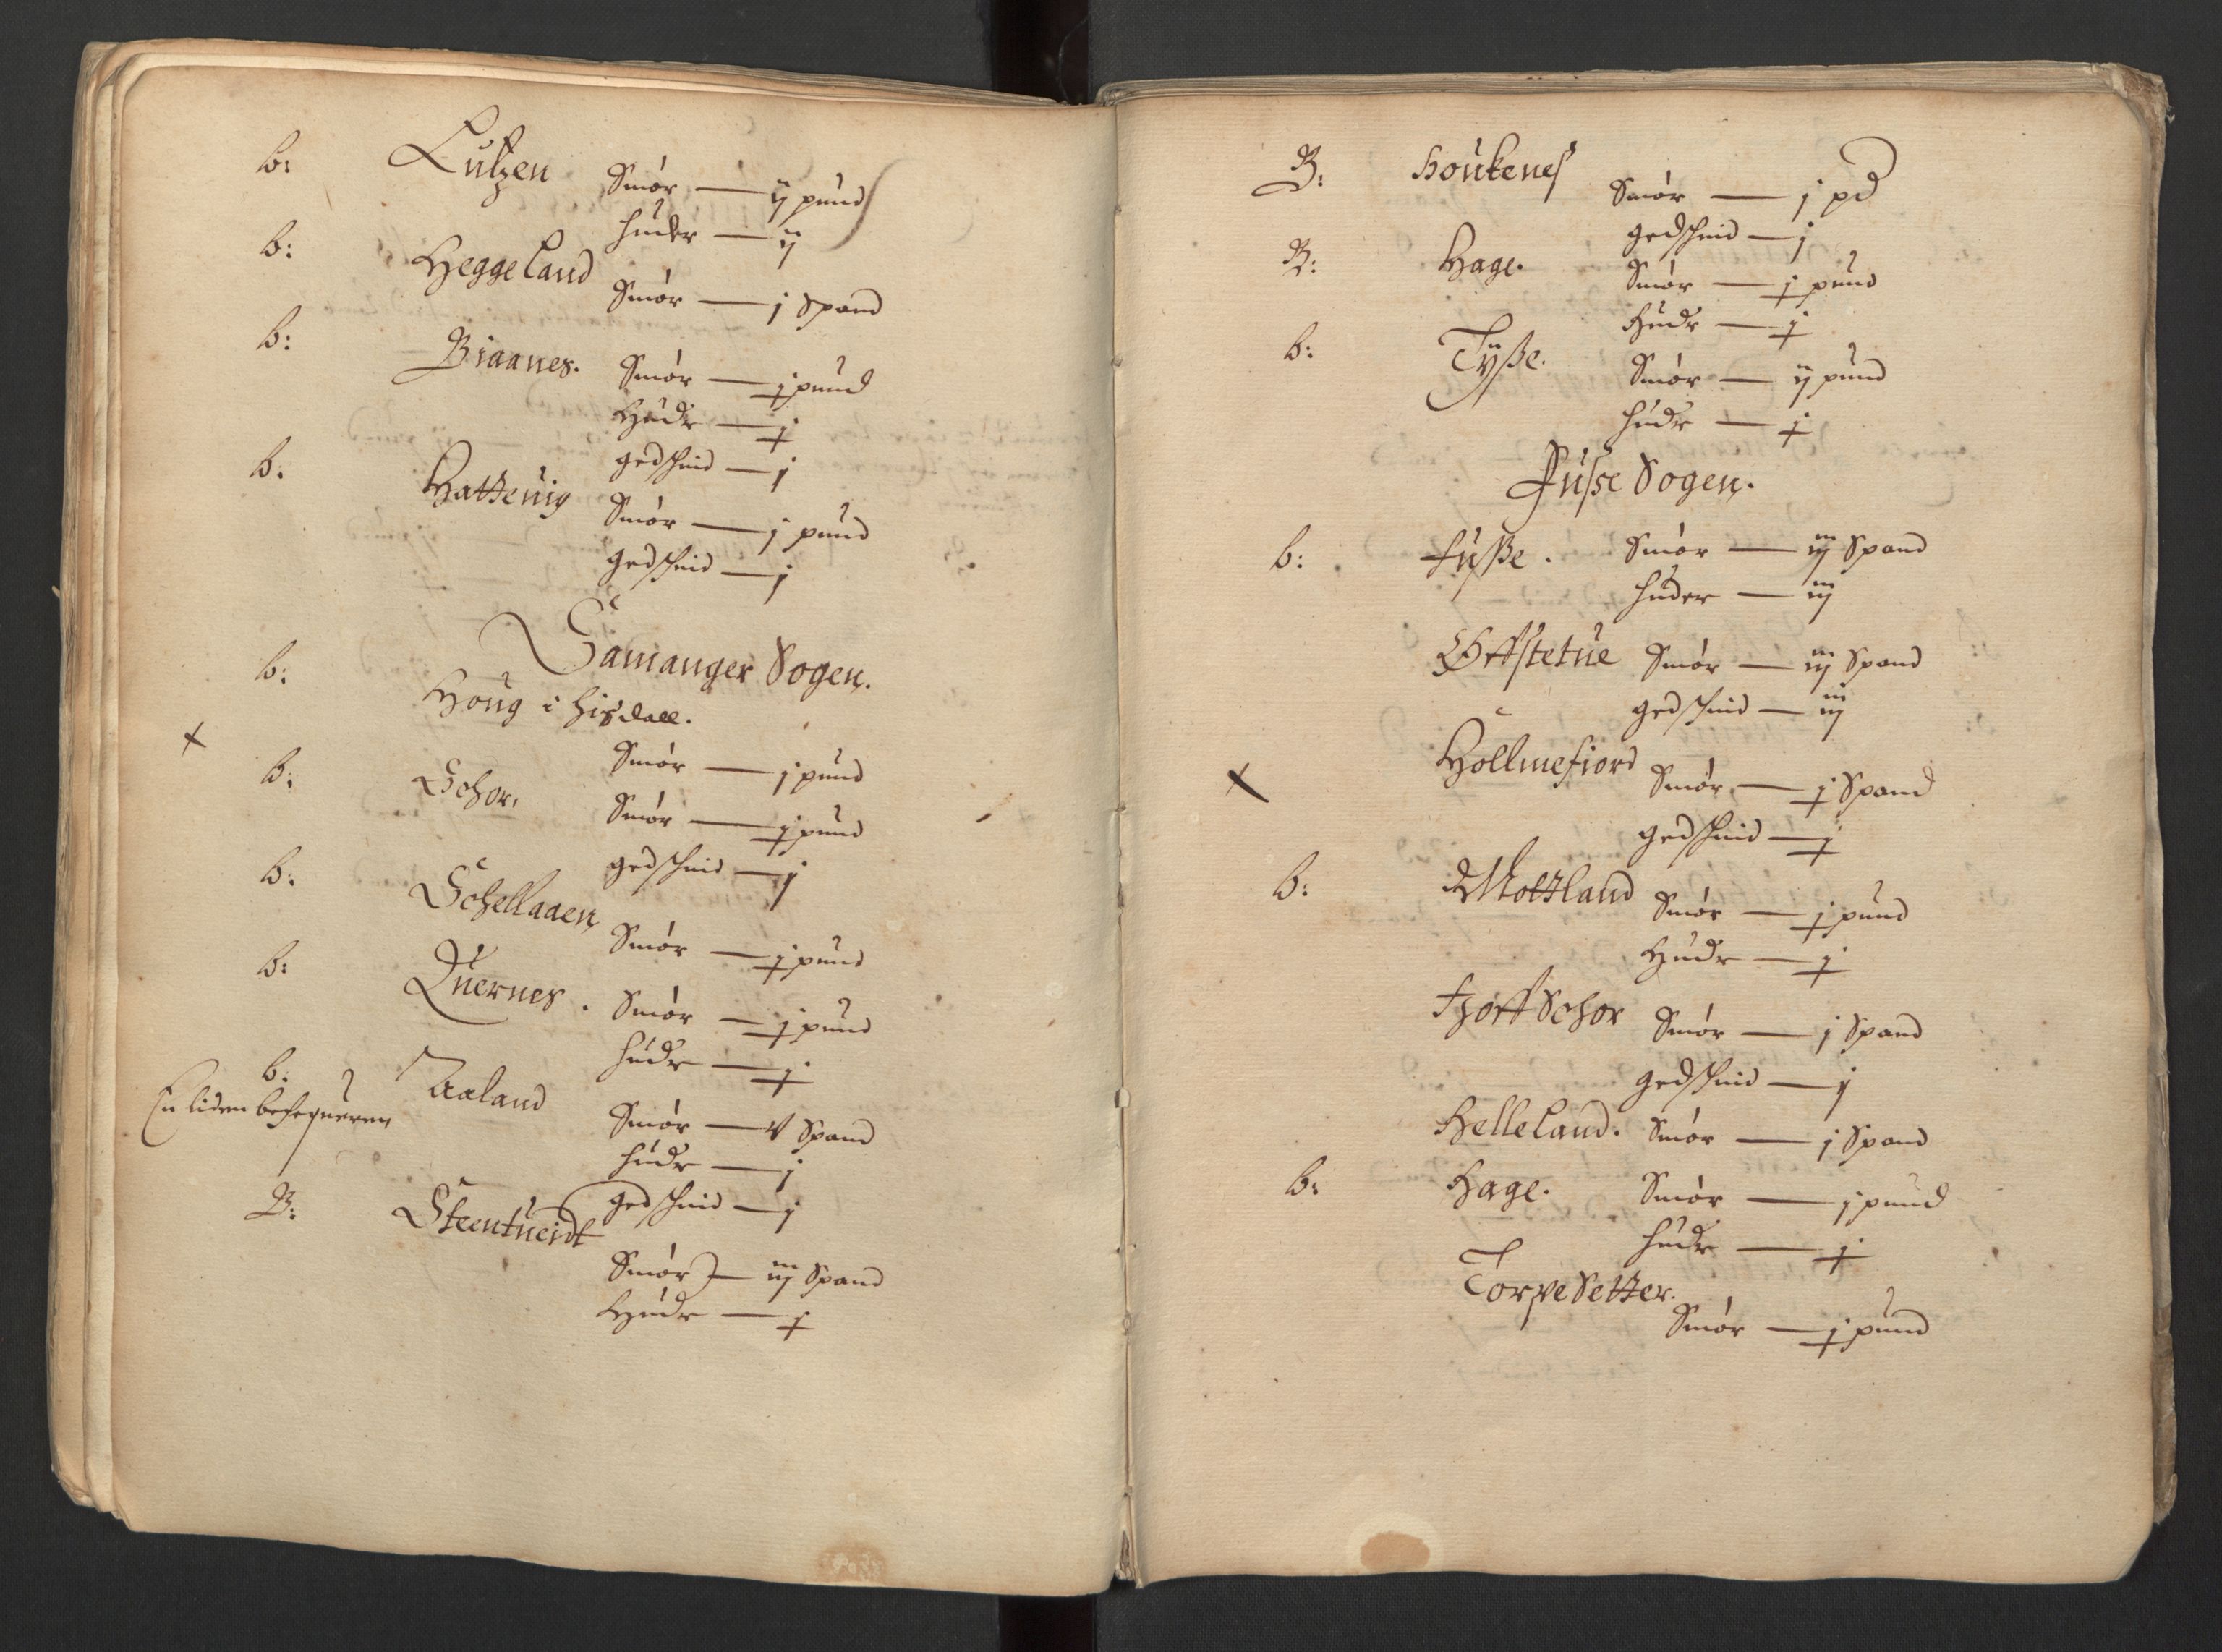 b: Lutzen Smør — ij pund
huder — ij
b: Heggeland Smør — j spand
b: Biaanes. Smør — j pund
Hudr — j
gedschind — j
b. Hatteuig Smør — j pund
gedschind — j
Samanger Sogen.
b: Houg i hisdall.
Smør — j pund
x
b: Schor. Smør — j pund
gedschind — j
b: Schellaaen Smør — j pund
b: Quernes. Smør — j pund
hudr — j
b. Aaland Smør — v spand
En liden
hudr — j
gedschind — j
B: Steentueidt
Smør — iij spand
Hudr — j
B: Houkenes Smør — j pd
gedschind — j
B: Hage. Smør — j pund
Hudr — j
b: Tysße. Smør — ij pund
hudr — j
Fusse Sogen.
b: fusße. Smør — iij Spand
huder — iij
Gffstetue Smør — iij Spand
gedschind — iij
x Hollmefiord Smør — j Spand
gedschind — j
b: Mottland Smør — j pund
Hudr — j
Tzorff Schor Smør — j Spand
gedschind — j
Helleland. Smør — j Spand
b: Hage. Smør — j pund
hudr — j
Torpe Setter.
Smør — j pund